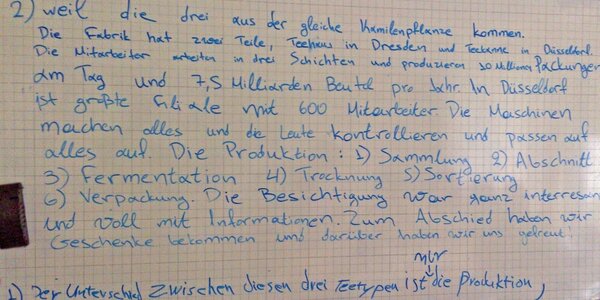 2) weil die drei aus der gleiche Kamilenpflanze kommen.
Die Fabrik hat zwei Teile, Teehaus in Dresden und Teekanne in Düsseldorf.
Die Mitarbeiter arbeiten in drei Schichten und produzieren 30 Millionen Packungen
am Tag und 7,5 Milliarden Beutel pro Jahr. In Düsseldorf
ist größte Filiale mit 600 Mitarbeiter. Die Maschinen
machen alles und die Leute kontrollieren und passen auf
alles auf. Die Produktion: 1) Sammlung 2) Abschnitt
3) Fermentation 4) Trocknung 5) Sortierung
6) Verpackung. Die Besichtigung war ganz interresan
und voll mit Informationen. Zum Abschied haben wir
Geschenke bekommen und darüber haben wir uns gefreut!
nur
1) Der Unterschied zwischen diesen drei Teetypen ist die Produktion,